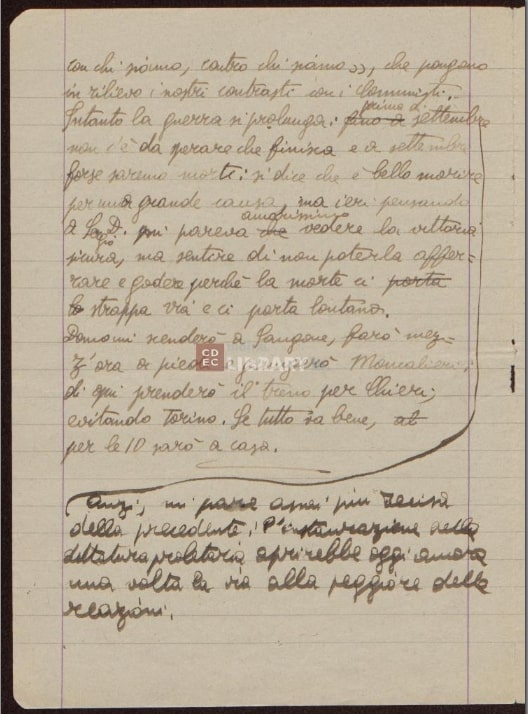 con chi siamo, contro chi siamo», che pongano
in rilievo i nostri contrasti con i Comunisti.
Intanto la guerra si prolunga: fino a prima di settembre
non c'è da sperare che finisca e a settembre
forse saremo morti: si dice che è bello morire
per una grande causa, ma ieri pensando
a mi pareva che amarissimo vedere la vittoria
sicura, ma sentire di non poterla affer=
rare e godere perché la morte ci porta
lo strappa via e ci porta lontano.
Domani scenderò a Sangone, farò mez=
z'ora a piedi Moncalieri;
di qui prenderò il treno per Chieri,
evitando Torino. Se tutto va bene, al
per le 10 sarò a casa.
CD
EC LIBRARY
anzi, mi pare assai più decisa
della precedente, l'instaurazione della
dittatura proletaria aprirebbe oggi ancora
una volta la via alla peggiore delle
reazioni.